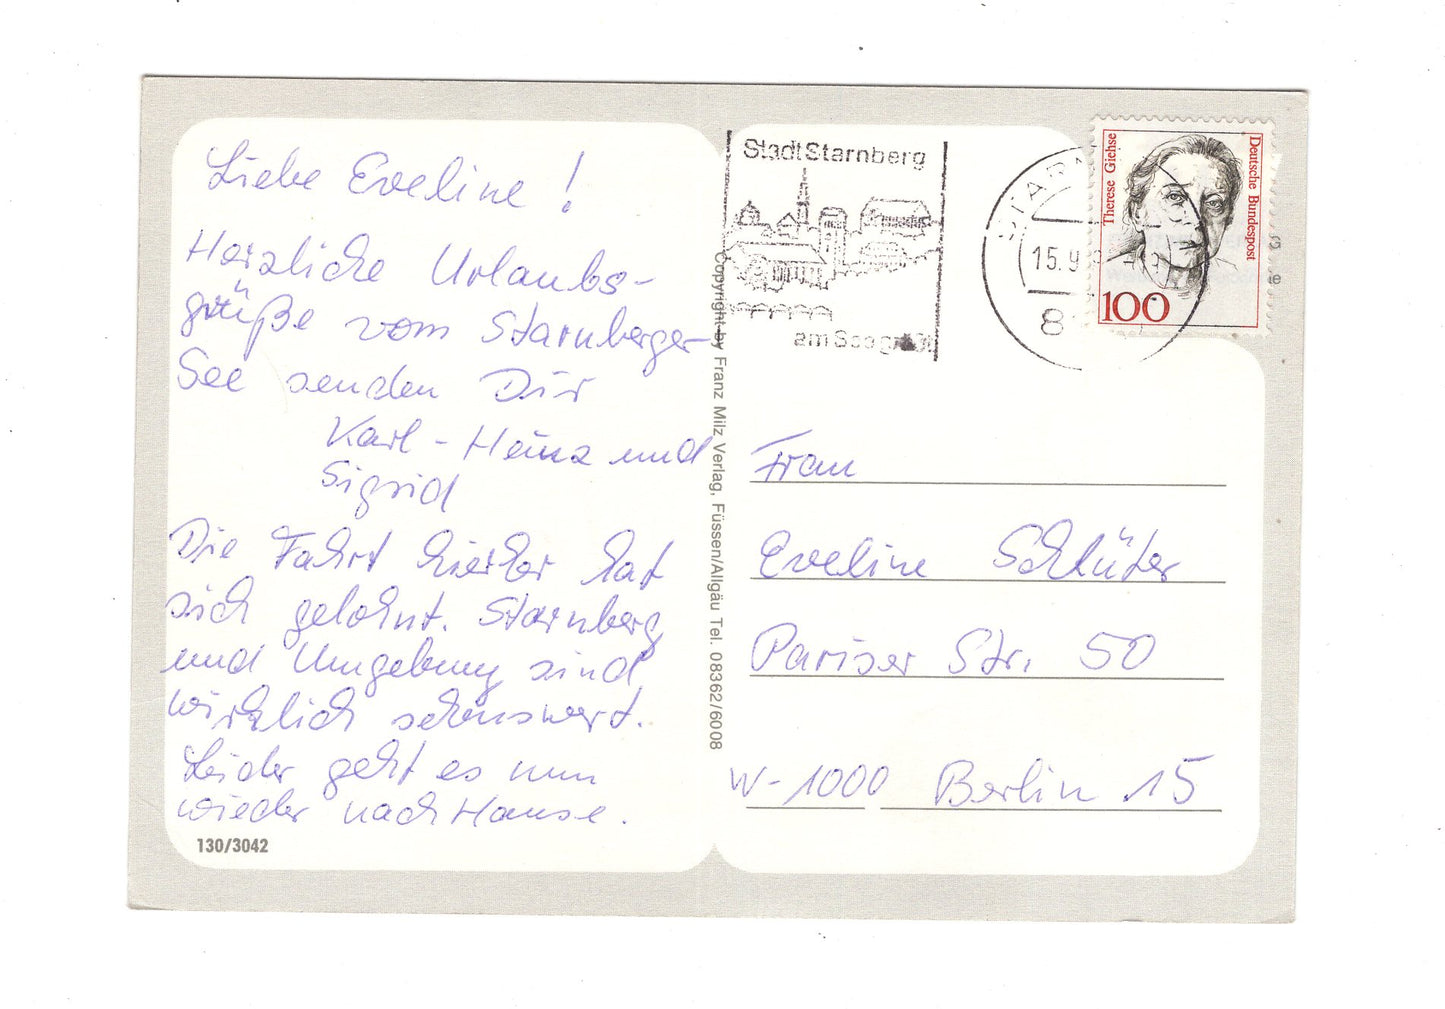 Liebe Eveline !
Herzliche Urlaubs-
grüße vom Starnberger-
See senden Dir
Karl-Heinz und
Sigrid
Die Fahrt hierher hat
sich gelohnt. Starnberg
und Umgebung sind
wirklich sehenswert.
Leider geht es nun
wieder nach Hause.
130/3042
Copyright by Franz Milz Verlag, Füssen/Allgäu Tel. 08362/6008
Stadt Starnberg
am See
15.9
Therese Giehse
Deutsche Bundespost
100
Frau
Eveline Schlüter
Pariser Str. 50
W-1000 Berlin 15